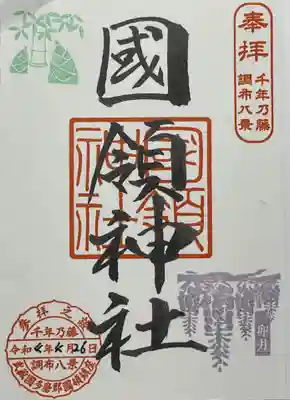 奉拝
千年乃藤
調布八景
國領神社
國領
神社
卯月
千年乃藤
令和4年4月26日
調布八景